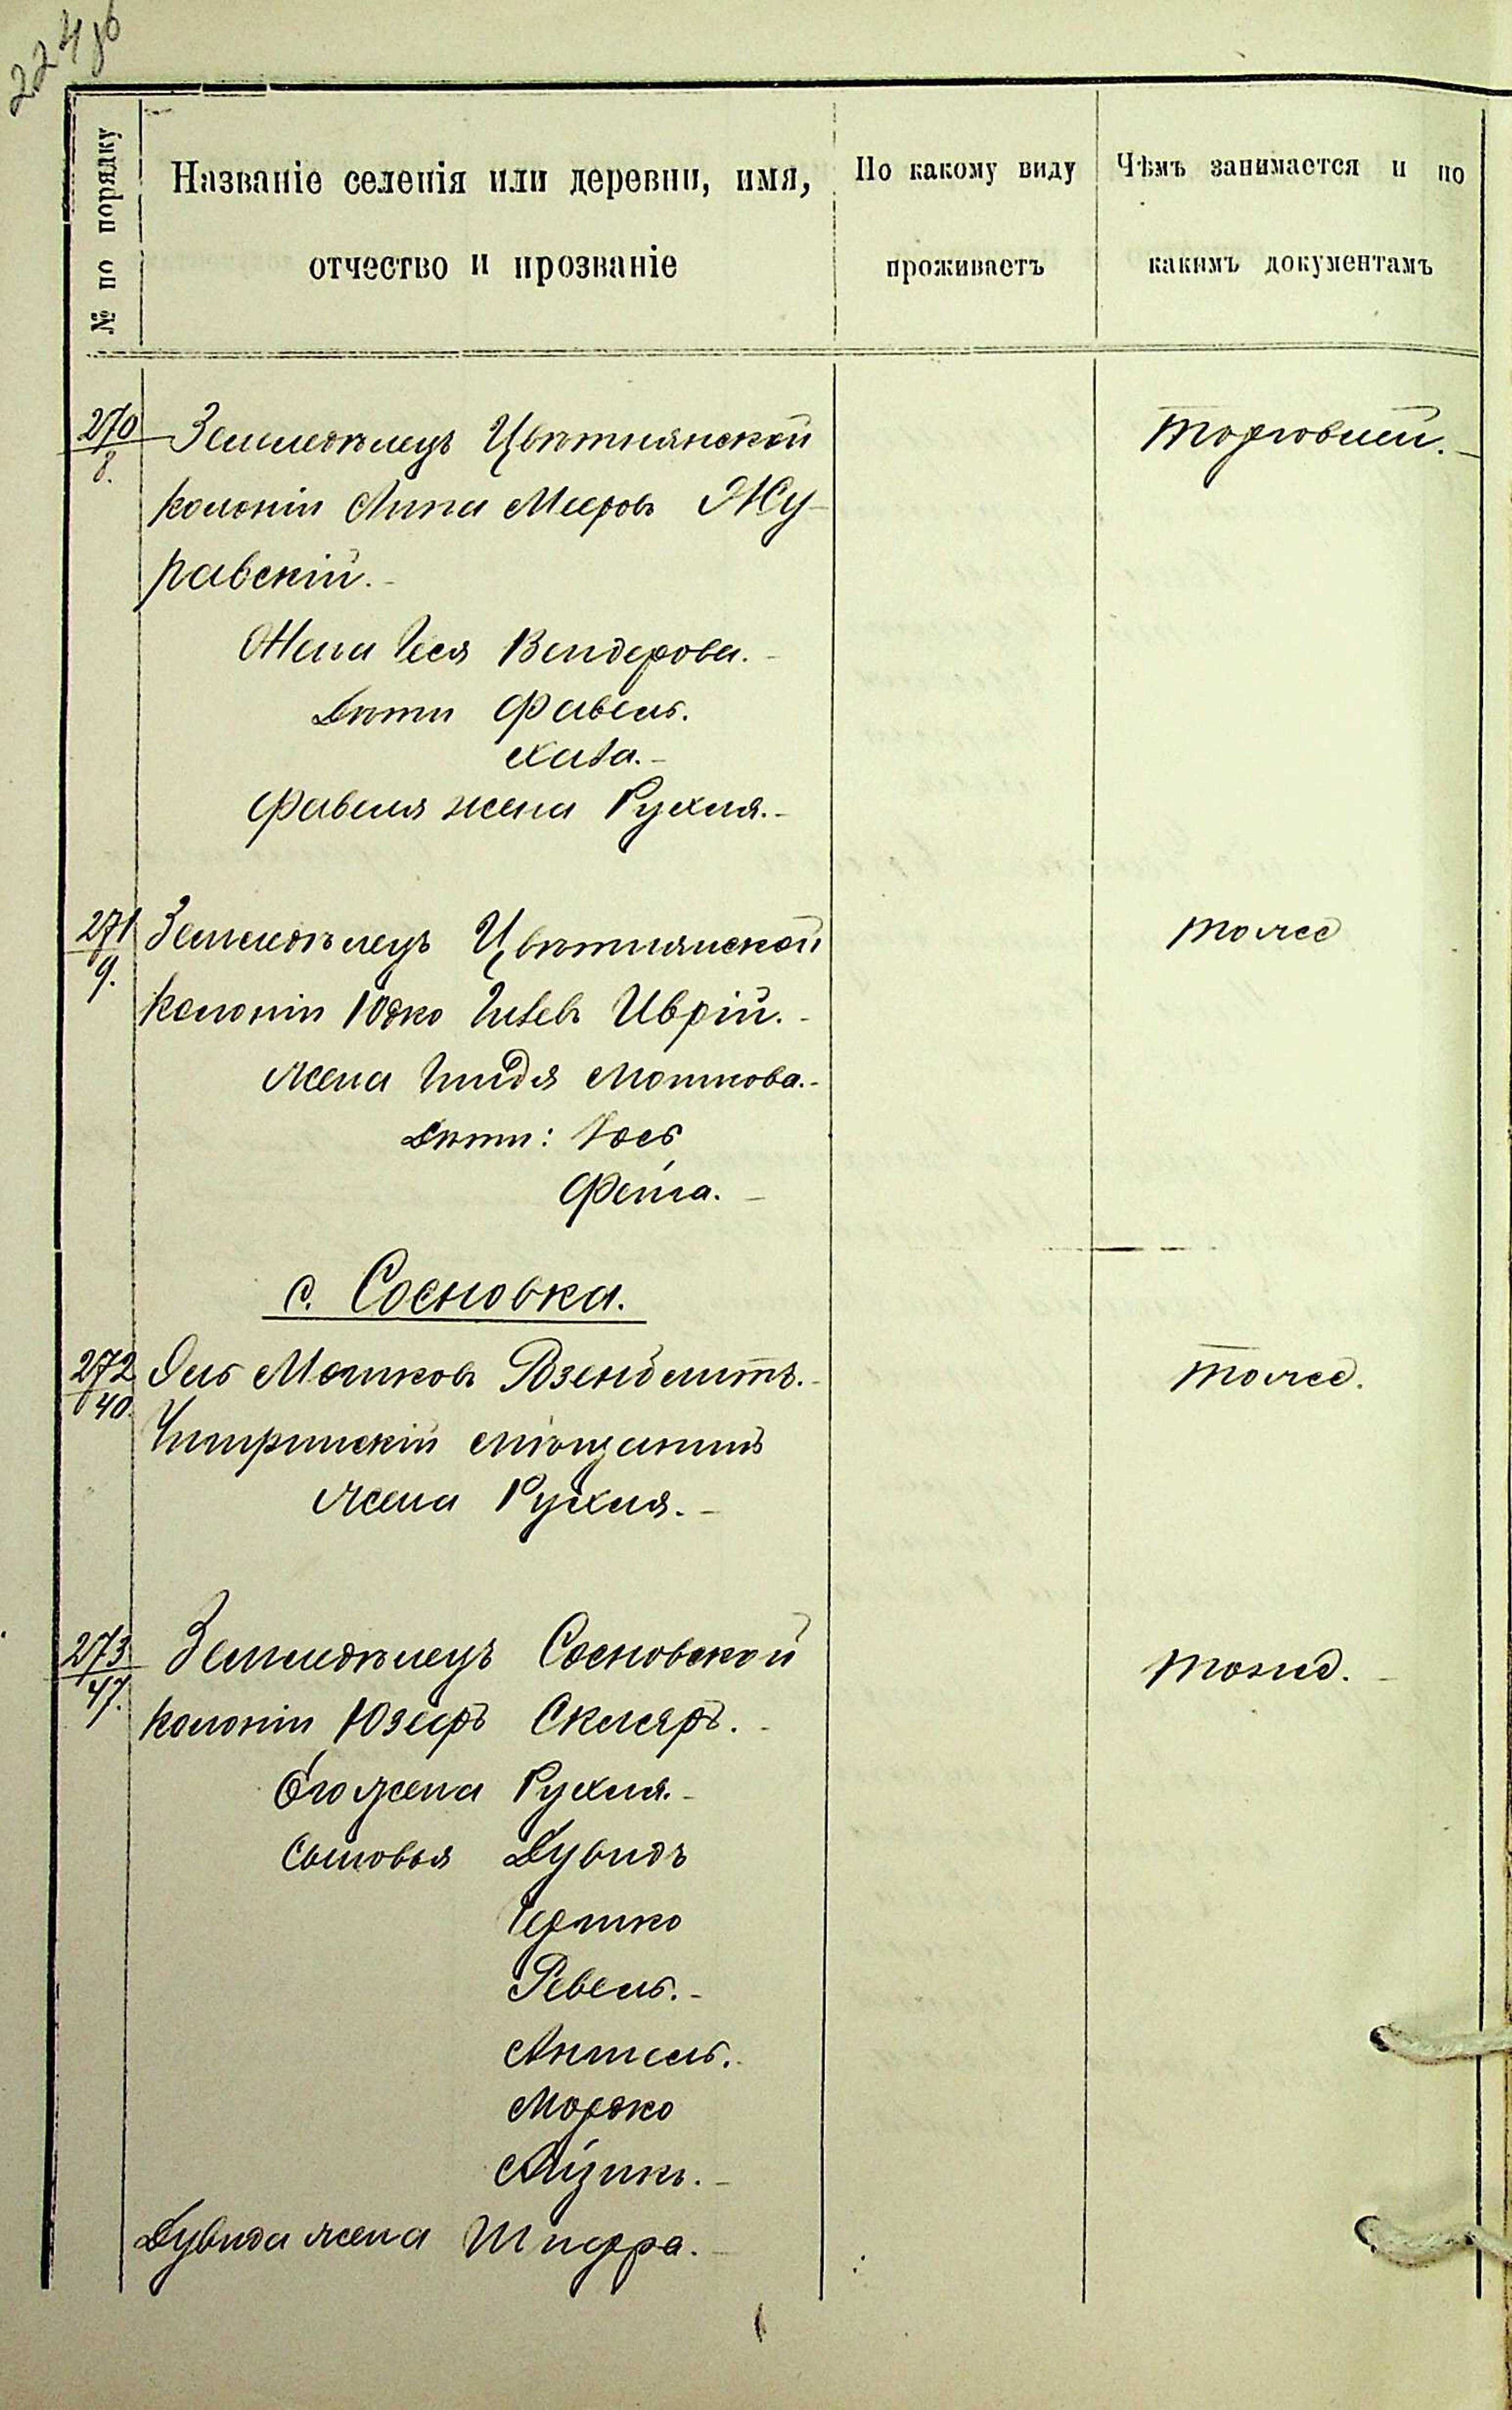 224об
№ по порядку
Названіе селенія или деревни, имя,
отчество и прозваніе
По какому виду
проживаетъ
Чѣмъ занимается и по
какимъ документамъ
270
8.
Земледѣлецъ Цвѣтнянской
Торговлей.
колоніи Липа Мееровъ Жу-
равскій.
Жена Чеся Вендерова.
Дѣти Фавель.
Хава.
Фавеля жена Рухля.
271
9.
Земледѣлецъ Цвѣтнянской
тоже
колоніи Юдко Иивръ
Жена Гиндя Мошкова.
Дѣти: Іось
Фейга.
с. Сосновка.
272
40.
Эль Мошковъ Розенблитъ.
тоже.
Чигиринскій мѣщанинъ
Жена Рухля.
273
47.
Земледѣлецъ Сосновской
тоже.
колоніи Юзеръ Скляръ.
Его жена Рухля.
Сыновья Дувидъ
Гершко
Ревель.
Аншель.
Мордко
Айзикъ.
Дувида жена Шифра.